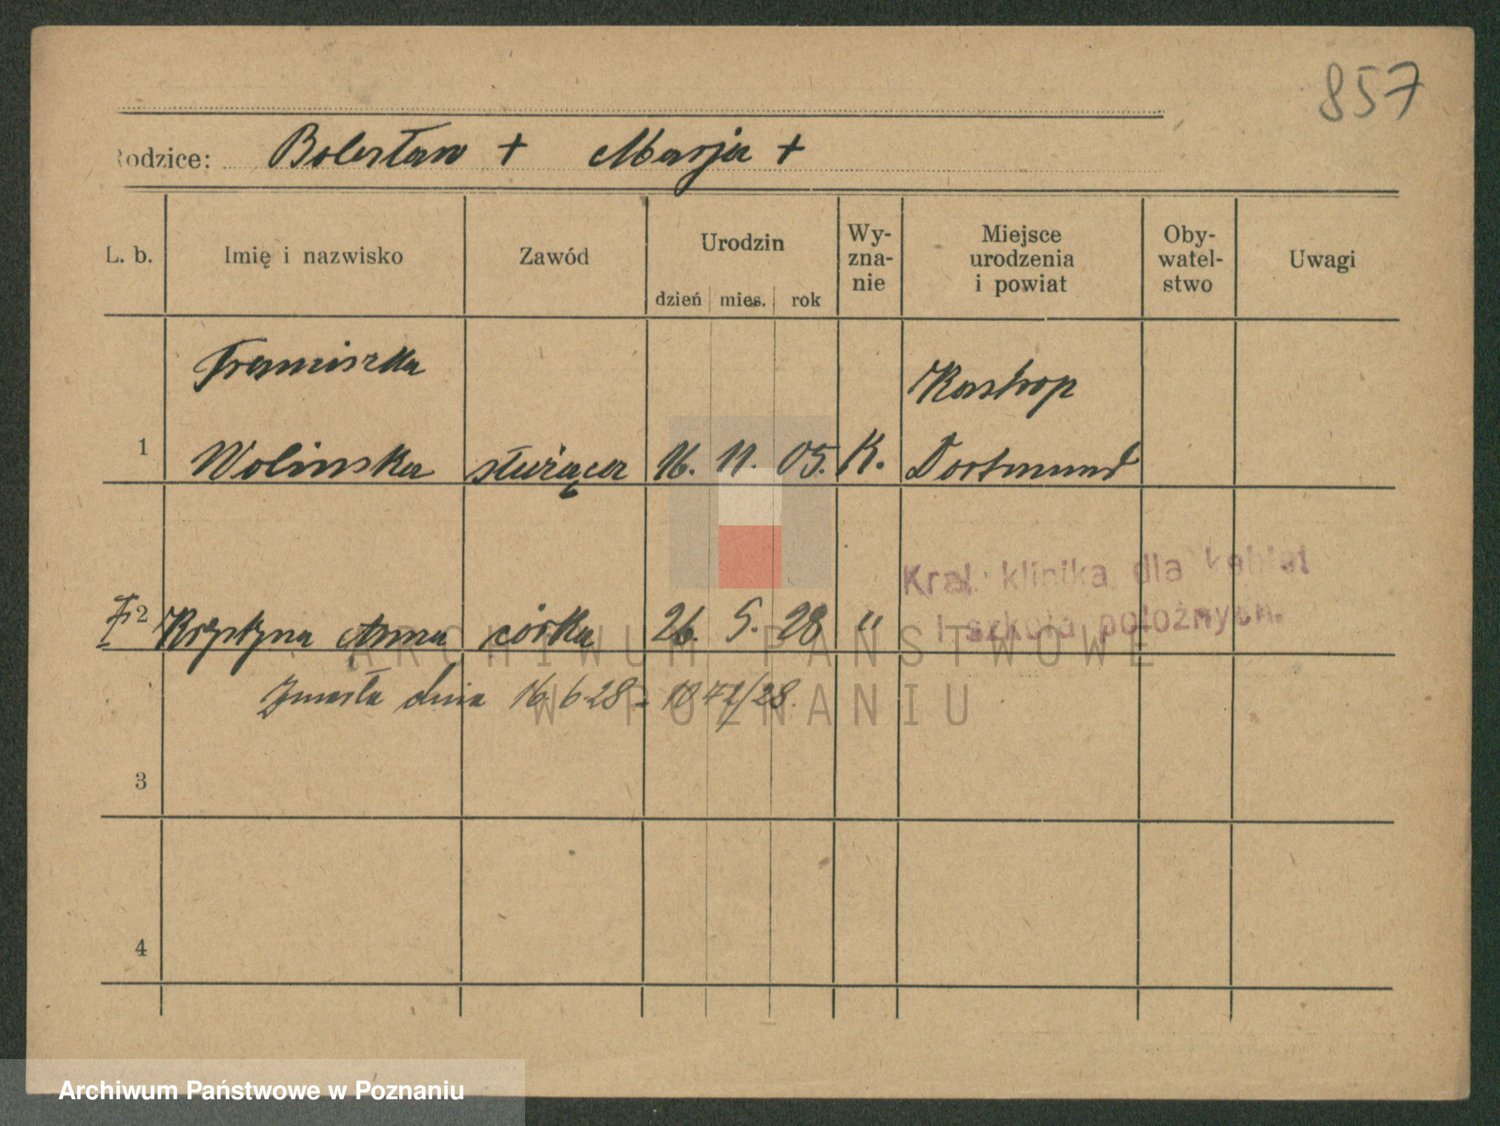 857
Rodzice: Bolesław + Marja +
L. b. Imię i nazwisko Zawód Urodzin Wy- zna- nie Miejsce urodzenia i powiat Oby- watel- stwo Uwagi
dzień mies. rok
Franciszka Kastrop
1 Wolinska służąca 16. 11. 05. K. Dortmund
Kraj. klinika dla kobiet
i szkoła położnych.
2 Krystyna Anna córka 26. 5. 28 "
Zmarła dnia 16.6.28 -
3
4
ARCHIWUM PAŃSTWOWE
W POZNANIU
Archiwum Państwowe w Poznaniu